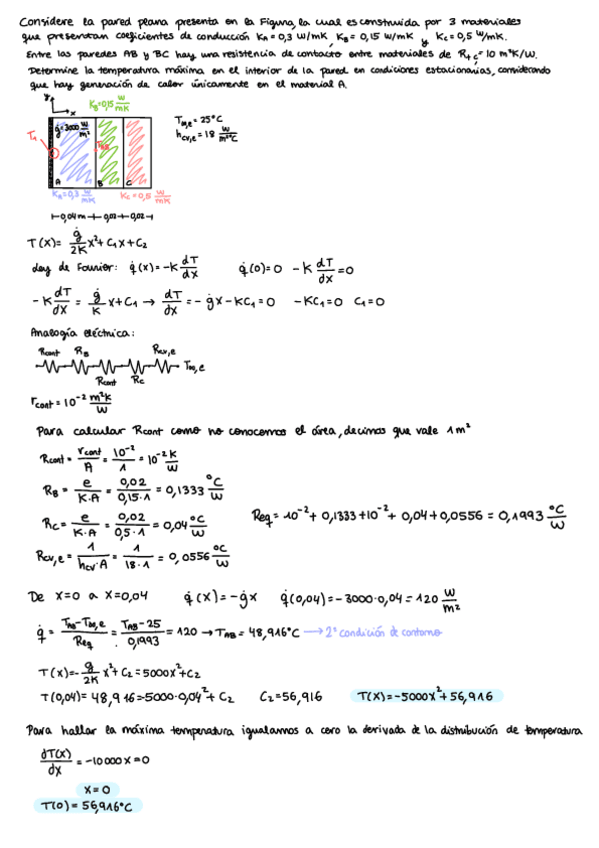 Considere la pared plana presenta en la Figura, la cual es construida por 3 materiales
que presentan coeficientes de conducción KA = 0,3 W/mK, KB = 0,15 W/mK y KC = 0,5 W/mK.
Entre las paredes AB y BC hay una resistencia de contacto entre materiales de Rt,c = 10 m²K/W.
Determine la temperatura máxima en el interior de la pared en condiciones estacionarias, considerando
que hay generación de calor únicamente en el material A.
KB = 0,15 W/mK
y
x
ġ = 3000 W/m³
T∞,e = 25°C
hcv,e = 18 W/m²°C
T1
TAB
A B C
KA = 0,3 W/mK KC = 0,5 W/mK
0,04 m 0,02 0,02
T(x) = ġ/2K x² + C1x + C2
Ley de Fourier: q̇(x) = -K dT/dx q̇(0) = 0 -K dT/dx = 0
-K dT/dx = ġ/K x + C1 → dT/dx = -ġx - KC1 = 0 -KC1 = 0 C1 = 0
Analogía eléctrica:
Rcont RB Rcv,e
T∞,e
Rcont RC
rcont = 10⁻² m²K/W
Para calcular Rcont como no conocemos el área, decimos que vale 1 m²
Rcont = rcont/A = 10⁻²/1 = 10⁻² K/W
RB = e/K·A = 0,02/0,15·1 = 0,1333 °C/W
RC = e/K·A = 0,02/0,5·1 = 0,04 °C/W
Req = 10⁻² + 0,1333 + 10⁻² + 0,04 + 0,0556 = 0,1993 °C/W
Rcv,e = 1/hcv·A = 1/18·1 = 0,0556 °C/W
De x=0 a x=0,04 q̇(x) = -ġx q̇(0,04) = -3000·0,04 = 120 W/m²
q̇ = TAB - T∞,e/Req = TAB - 25/0,1993 = 120 → TAB = 48,916°C → 2ª condición de contorno
T(x) = -ġ/2K x² + C2 = 5000x² + C2
T(0,04) = 48,916 = -5000·0,04² + C2 C2 = 56,916 T(x) = -5000x² + 56,916
Para hallar la máxima temperatura igualamos a cero la derivada de la distribución de temperatura
dT(x)/dx = -10000x = 0
x = 0
T(0) = 56,916°C